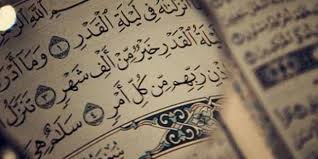 أَنزَلْنَٰهُ فِى لَيْلَةِ ٱلْقَدْرِ ١ وَمَآ أَدْرَ
لَيْلَةُ ٱلْقَدْرِ خَيْرٌ مِّنْ أَلْفِ شَهْرٍ ٣ تَنَزَّلُ
ذْنِ رَبِّهِم مِّن كُلِّ أَمْرٍ ٤ سَلَٰمٌ هِىَ